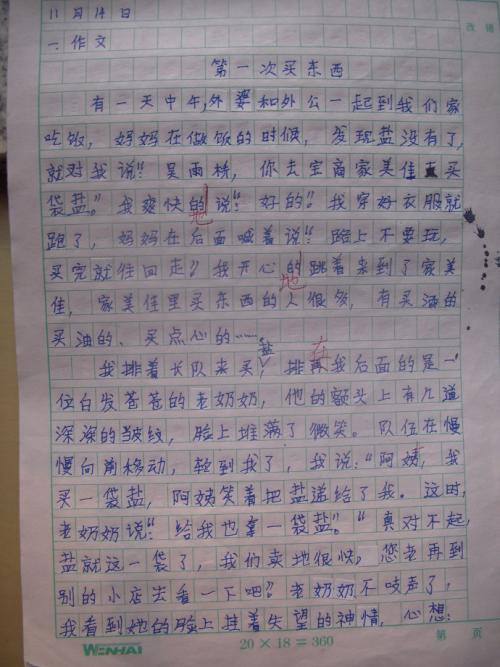 改错
11月14日
一.作文
第一次买东西
有一天中午,外婆和外公一起到我们家
吃饭,妈妈在做饭的时候,发现盐没有了,
就对我说:"吴雨桥,你去宝商家美佳买
袋盐。"我爽快的说:"好的!"我穿好衣服就
地
跑了,妈妈在后面喊着说:"路上不要玩,
买完就往回走!"我开心的跳着来到了家美
地
佳,家美佳里买东西的人很多,有买酒的
买油的、买点心的……
盐 在
我排着长队来买,排再我后面的是一
位白发苍苍的老奶奶,他的额头上有几道
深深的皱纹,脸上堆满了微笑。队伍在慢
慢向前移动,轮到我了,我说:"阿姨,我
买一袋盐,阿姨笑着把盐递给了我。这时,
老奶奶说:"给我也拿一袋盐。""真对不起,
盐就这一袋了,我们卖地很快,您老再到
别的小店去看一下吧?"老奶奶不吱声了,
我看到她的脸上挂着失望的神情,心想:
WENHAI
20×18=360
第 页